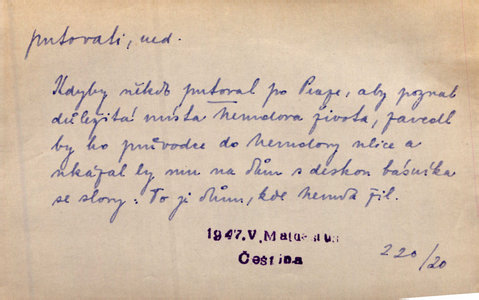 putovati, ned.
Kdyby někdo putoval po Praze, aby poznal
důležitá místa Nerudova života, zavedl
by ho průvodce do Nerudovy ulice a
ukázal by mu na dům s deskou básníka
se slovy: To je dům, kde Neruda žil.
1947. V. Mathesius
Čeština
220/20